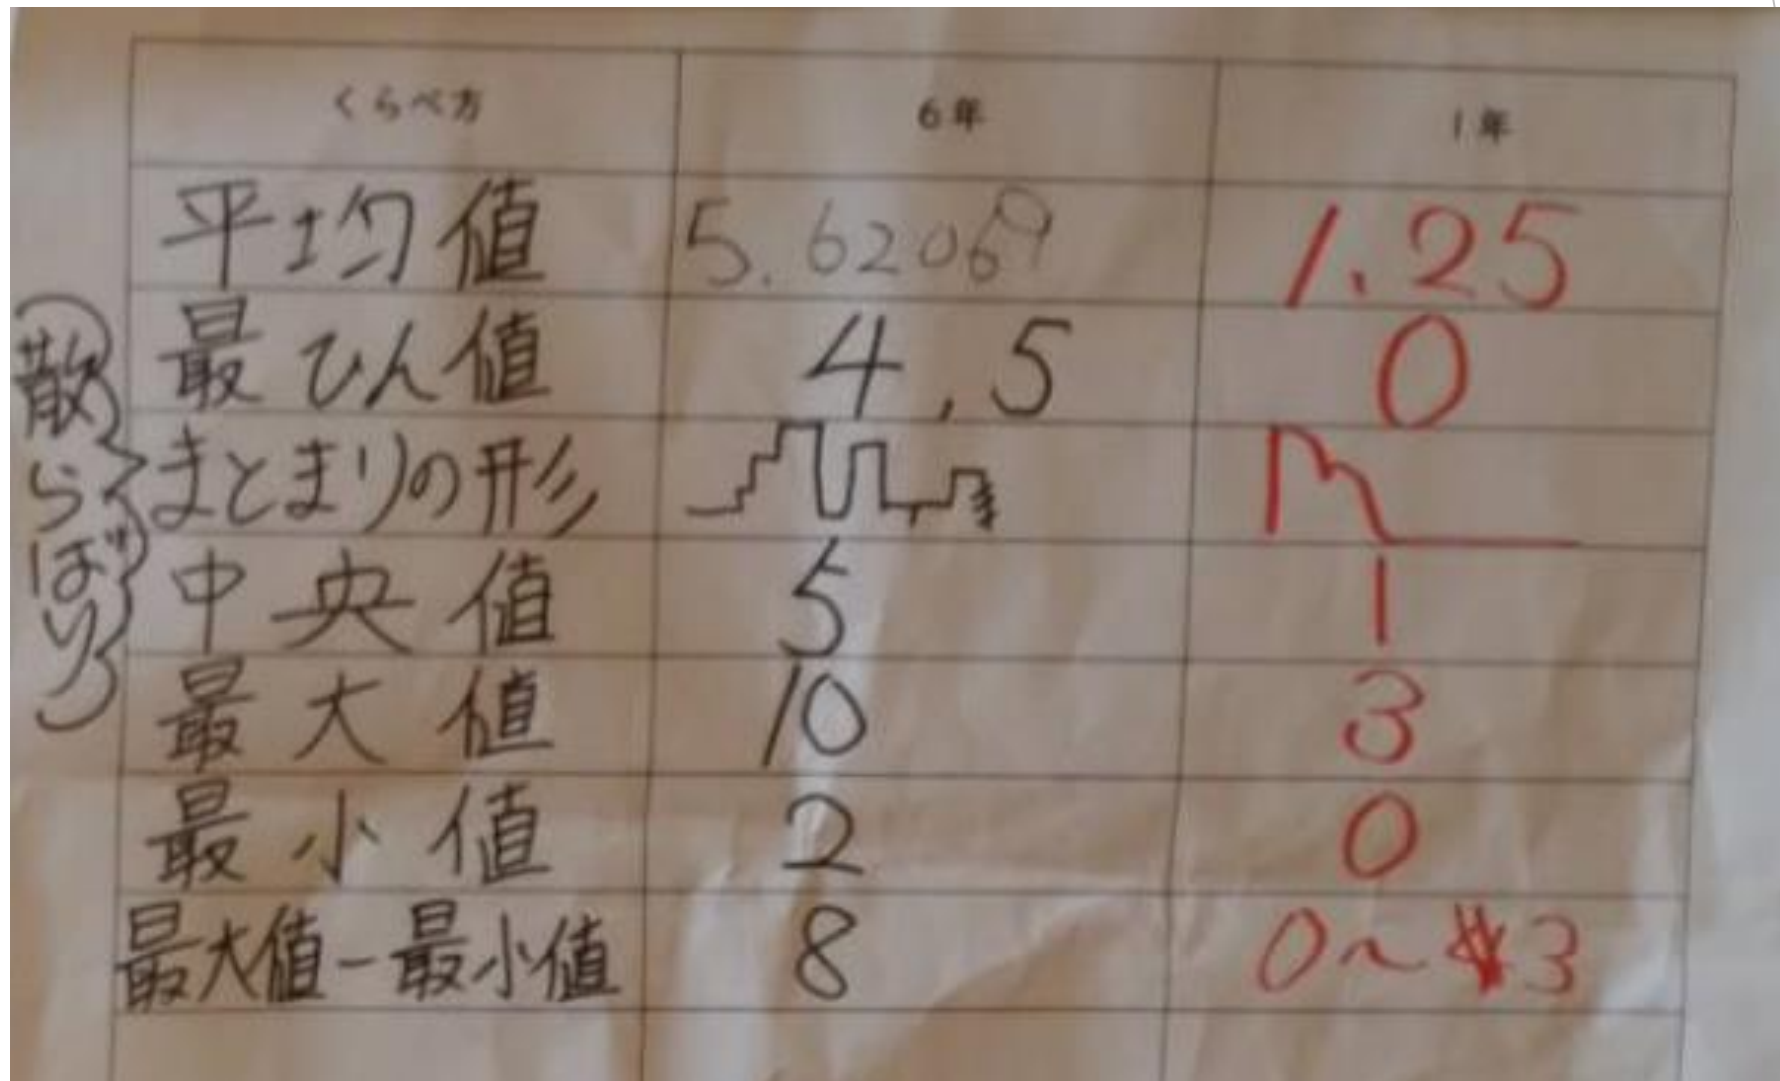 くらべ方 6年 1年
平均値 5.62069 1.25
最ひん値 4,5 0
まとまりの形
中央値 5 1
最大値 10 3
最小値 2 0
最大値-最小値 8 0~3
散らばり